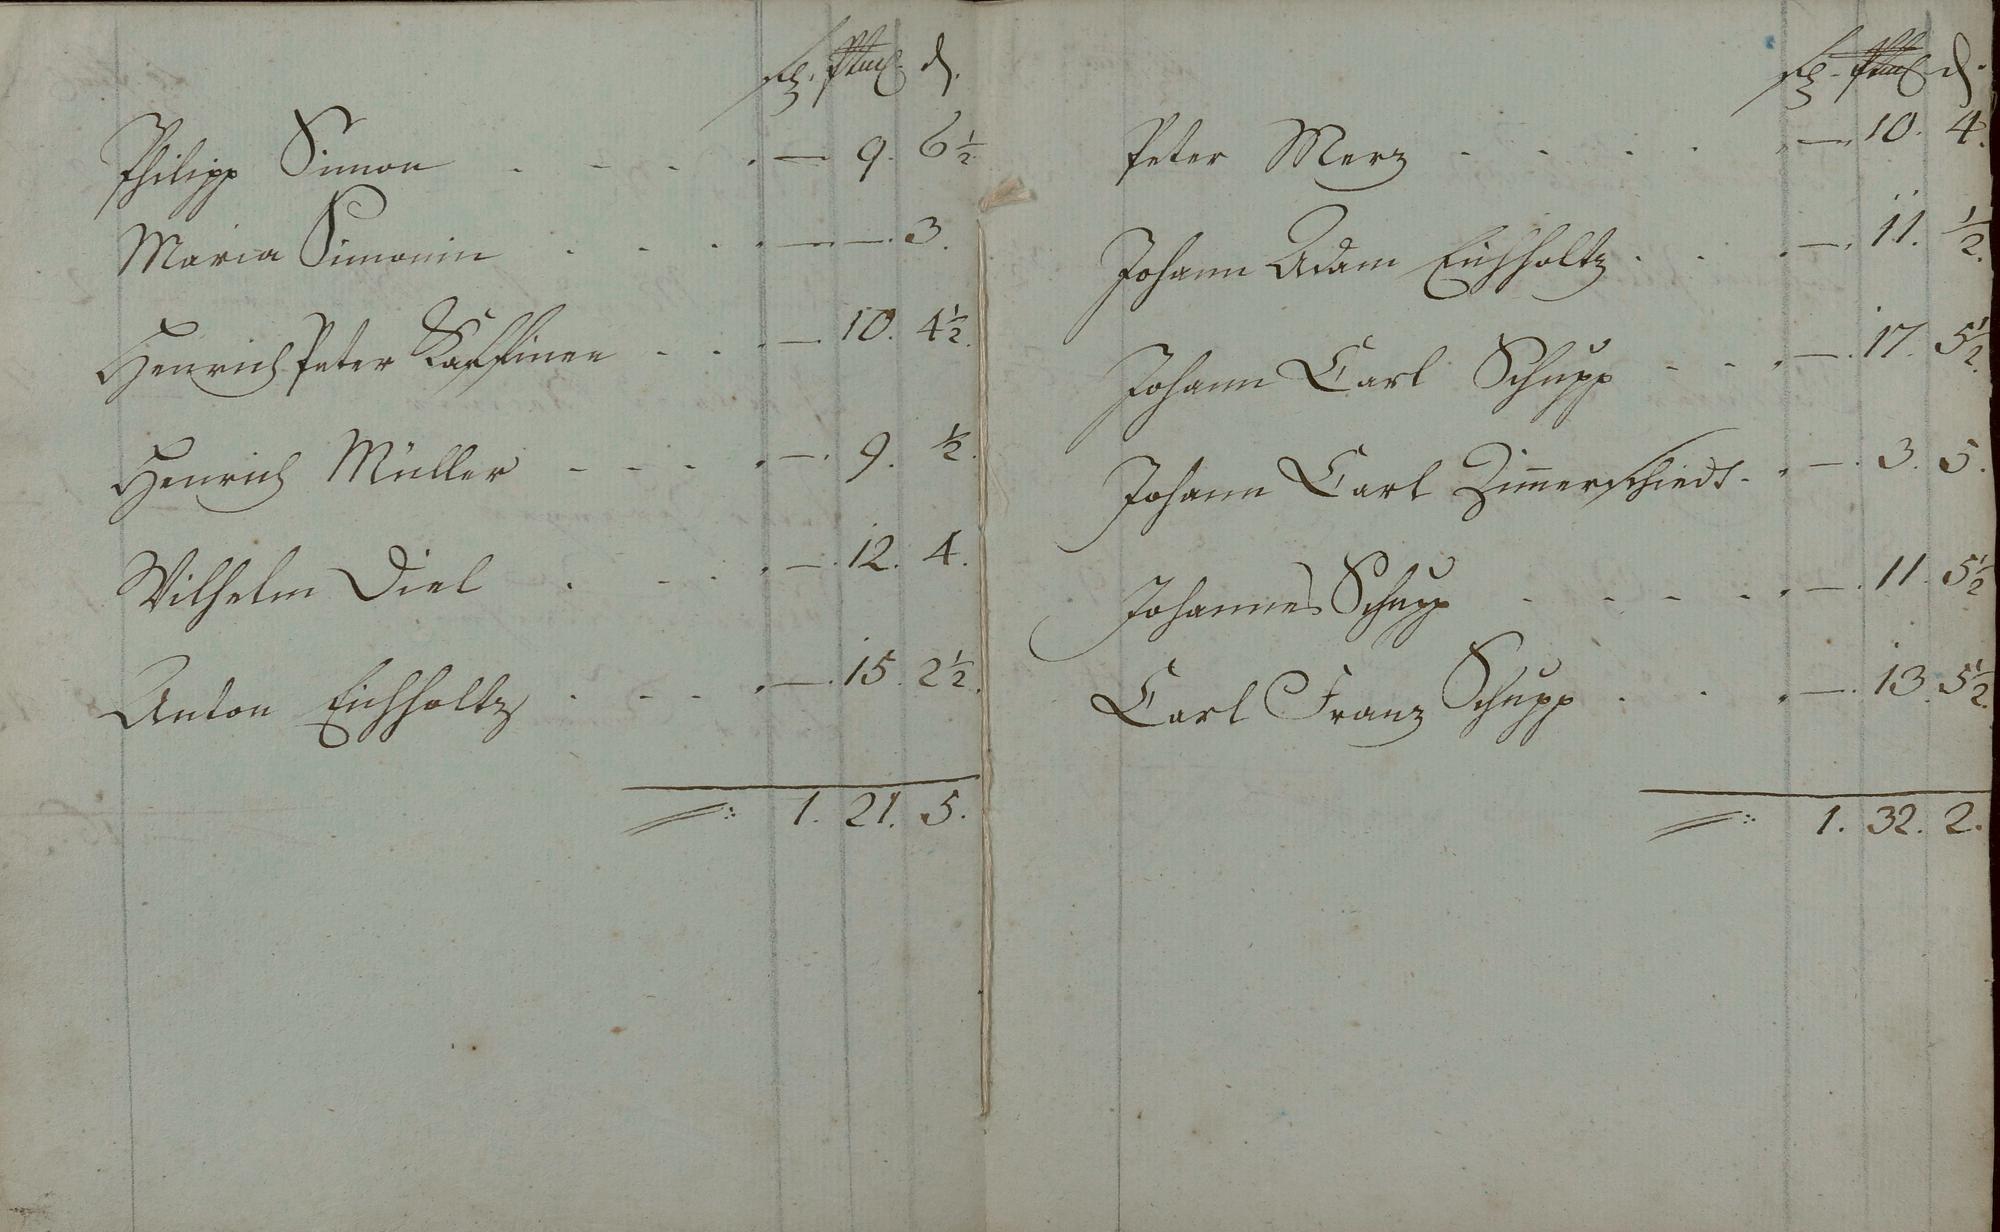 d.
Philipp Simon . - - . — 9. 6½
Maria Simonin . - - . — —. 3.
Henrich Peter - - . — 10. 4½.
Henrich Müller - - - . —. 9. ½.
Wilhelm Diel . - - . —. 12. 4.
Anton Eichholtz . - - - . —. 15. 2½.
1. 21. 5.
d.
Peter Merz . - - . . — 10. 4.
Johann Adam Eichholtz . . . —. 11. ½.
Johann Carl Schupp - - . —. 17. 5½.
Johann Carl Zimerschiedt - . —. 3. 5.
Johannes Schupp - - - - . —. 11. 5½
Carl Franz Schupp . . . —. 13. 5½.
1. 32. 2.